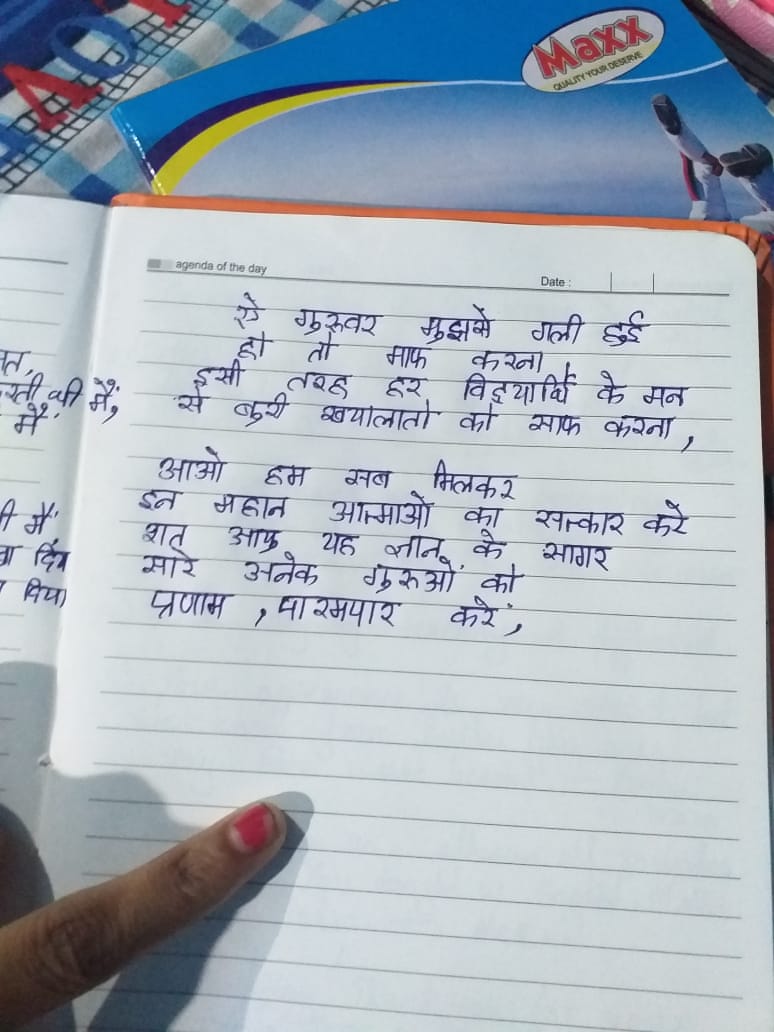 Maxx
QUALITY YOUR DESERVE
agenda of the day
Date :
ऐ गुरुवर मुझसे गली हुई
हो तो माफ करना,
इसी तरह हर विद्यार्थि के मन
से बुरी ख्यालातो को साफ करना,
आओ हम सब मिलकर
इन महान आत्माओं का सत्कार करे
शत् आफ यह ज्ञान के सागर
सारे अनेक गुरुओं को
प्रणाम , पारमपार करें,
में,
में
दिया